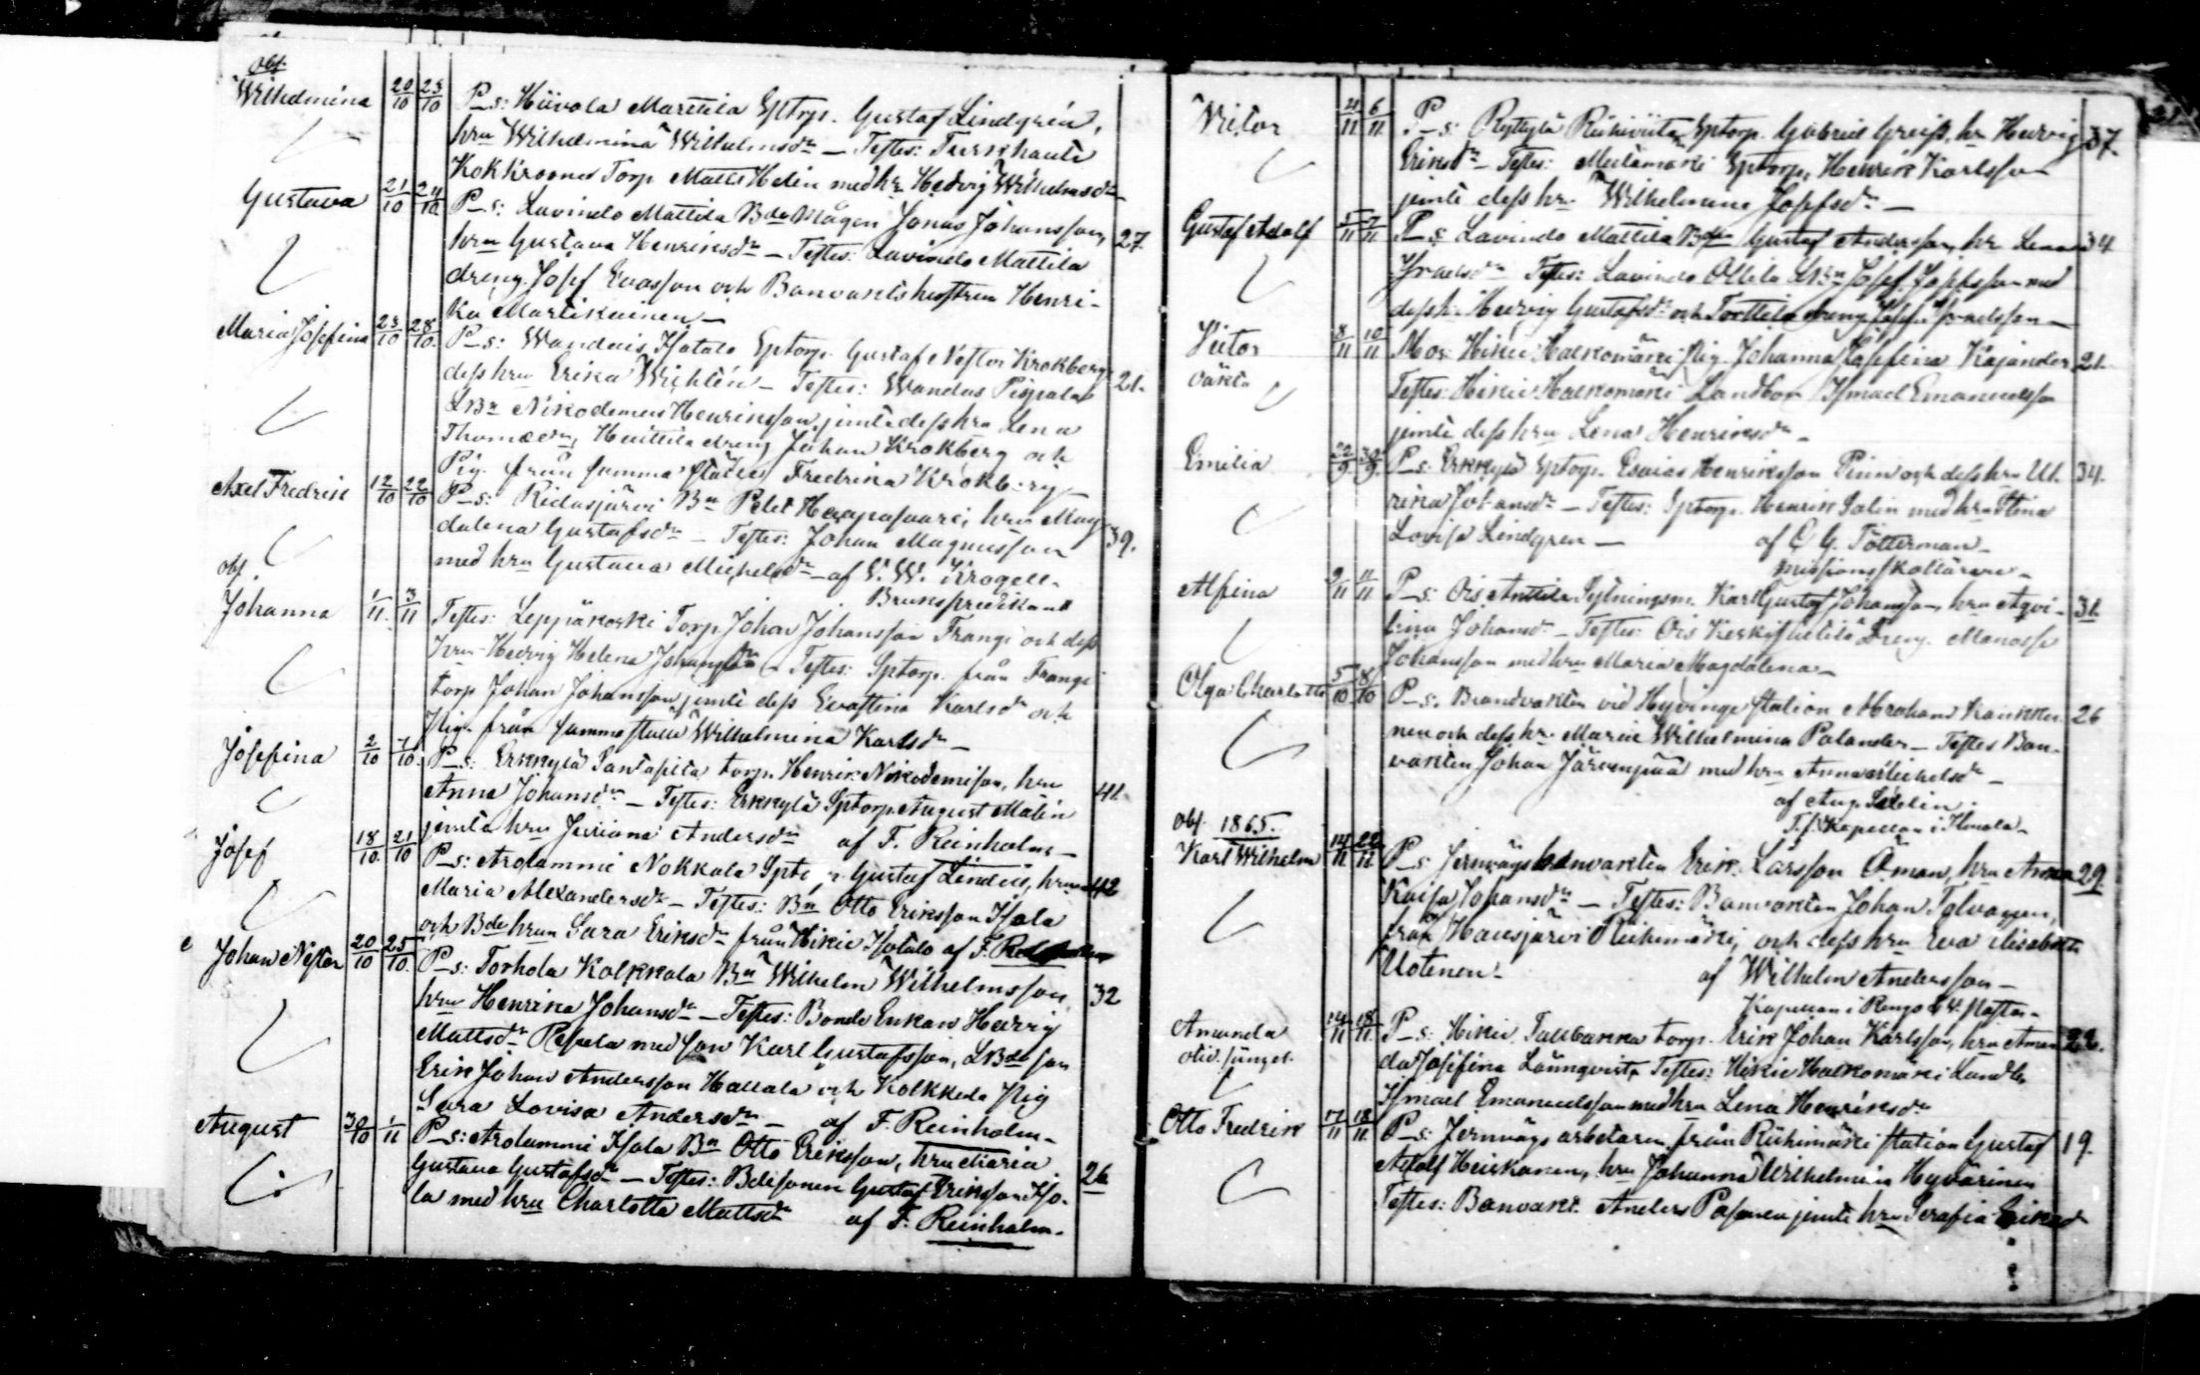 obs.
Wilhelmina 20/10 23/10 P_s: Hiivola Marttila Sptorp. Gustaf Lindgrén,
hru Wilhelmina Wilhelmsdr — Testes: Turkhauta
Torp Matts Helin med hr. Hedvig Wilhelmsdr
Gustava 21/10 24/10 P_s: Lavindo Mattila Bde Mågen Jonas Johansson, 27.
hru Gustava Henriksdr — Testes: Lavindo Mattila
dreng Josef Evasson och Banvakts hustrun Henri-
ka Martikainen —
Maria Josefina 23/10 28/10 P_s: Wandais Isotalo Sptorp. Gustaf Nestor Krokberg 21.
dess hru Erika Wichtén — Testes: Wandas Pispala
LBn Nikodemus Henriksson, jemte dess hru Lena
Thomædr, Huittila dreng Johan Krokberg och
Pig. från samma ställe Fredrika Krokberg —
Axel Fredrik 12/10 22/10 P_s: Ridasjärvi Bn Petet Haapasaari, hru Mag- 39.
dalena Gustafsdr — Testes: Johan Magnusson
med hru Gustava Michelsdr — af V. W. Krogell.
Brukspredikant
obs.
Johanna 1/11 3/11 Testes: Leppäkoski Torp. Johan Johansson Frangi och dess
hru Hedvig Helena Johansdr — Testes: Sptorp. från Frangi
torp Johan Johansson jemte dess Evastina Karlsdr och
Pig. från samma ställe Wilhelmina Karlsdr —
Josefina 2/10 7/10 P_s: Erkkylä Santapita torp. Henrik Nikodemisson, hru 41.
Anna Johansdr — Testes: Erkkylä Sptorp. August Malén
jemte hru Juliana Andersdr af F. Reinholm —
Josef 18/10 21/10 P_s: Arolammi Nokkala Gustaf Lindell, hru 42
Maria Alexandersdr — Testes: Bn Otto Eriksson Isola
och Bde hrun Sara Eriksdr från Hikiä Isotalo af F.
Johan Nestor 20/10 25/10 P_s: Torhola Kolkkala Bn Wilhelm Wilhelmsson, 32
hru Henrika Johansdr — Testes: Bonde Enkan Hedvig
Mattsdr Pepala med son Karl Gustafsson, LBde son
Erik Johan Andersson Hallala och Kolkkala Pig
Sara Lovisa Andersdr — af F. Reinholm —
August 30/10 1/11 P_s: Arolammi Isola Bn Otto Eriksson, hru Maria 26
Gustava Gustafsdr — Testes: Bdesonen Gustaf Eriksson Iso-
la med hru Charlotta Mattsdr af F. Reinholm —
Viktor 4/11 6/11 P_s: Ryttylä Riihiviita Sptorp. Gabriel Greiss, hr. Hedvig 37.
Eriksdr — Testes: Sptorp. Henrik Karlsson
jemte dess hr. Wilhelmina Josefsdr —
Gustaf Adolf 5/11 7/11 P_s: Lavindo Mattila Bden Gustaf Andersson, hr. Lena 34
Israelsdr Testes: Lavindo Ollila LBn Josef Josefsson med
dess h. Hedvig Gustafsdr och Torttila dreng Josef Israelsson —
Viktor 8/11 10/11 Mor: Hikiä Halkomäki Pig. Johanna Josefina Kajander 21.
oäkta Testes: Hikiä Halkomäki Landbon Ismael Emanuelsson
jemte dess hru Lena Henriksdr —
Emilia P_s: Erkkylä Sptorp. Esaias Henriksson Piun och dess hru Ul- 34.
rika Johansdr — Testes: Sptorp. Henrik Salin med hru Stina
Lovisa Lindgren — af C G. Tötterman —
missionsskollärare —
Alfina 9/11 11/11 P_s: Ois Anttila Sytningsm. Karl Gustaf Johansson, hru Aqvi- 31.
lina Johansdr — Testes: Ois Dreng. Manasse
Johansson med hru Maria Magdalena —
Olga Charlotta 5/10 8/10 P_s. Brandvakten vid Hyvinge Station Abraham Kankku- 26
nen och dess hr. Maria Wilhelmina Palander — Testes Ban-
vakten Johan Järvenpää med hru Anna Michelsdr —
af Aug.
T.f. Kapellan i
obs. 1865.
Karl Wilhelm P_s Jernvägs banvakten Erik Larsson Öman, hru Anna 29.
Kaisa Johansdr — Testes: Banvakten Johan Tolvanen,
från Hausjärvi Riihimäki, och dess hru Eva Elisabeth
Uotinen — af Wilhelm Andersson —
Kapellan i Rengo
Amanda 14/11 18/11 P_s: Hikiä Torp. Erik Johan Karlsson, hru Aman- 22.
da Josefina Lönnqvist, Testes: Hikiä Halkomäki Landb.
Ismael Emanuelsson med hru Lena Henriksdr
Otto Fredrik 17/11 18/11 P_s: Jernvägs arbetaren från Riihimäki station Gustaf 19.
Adolf Heiskanen, hru Johanna Wilhelmina Hyvärinen
Testes: Banvakt. Anders Pasanen jemte hru Serafia Eriksdr